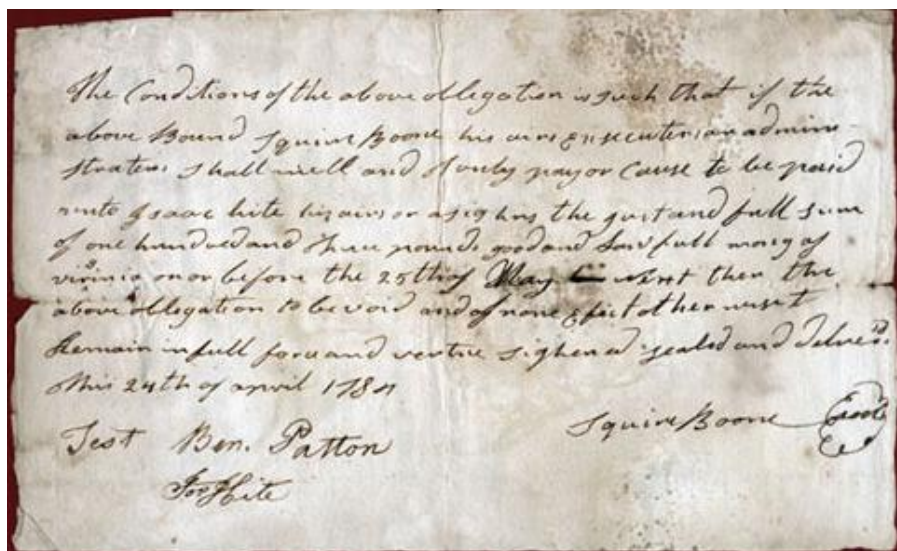 The Conditions of the above oblegation is such that if the
above Bound Squire Boone his airs Exsecuters or admine
straters shall well and
pay or Cause to be paid
unto Isaac hite his airs or asighns the gust and full sum
of one hundred and three pounds good and Lawfull money of
virginia on or before the 25th of May next then the
above oblegation to be void and of none Efect otherwise
Remain in full force and vertue sighened sealed and
this 24th of april 1784
Squire Boone Seal
Test Ben. Patton
Hite